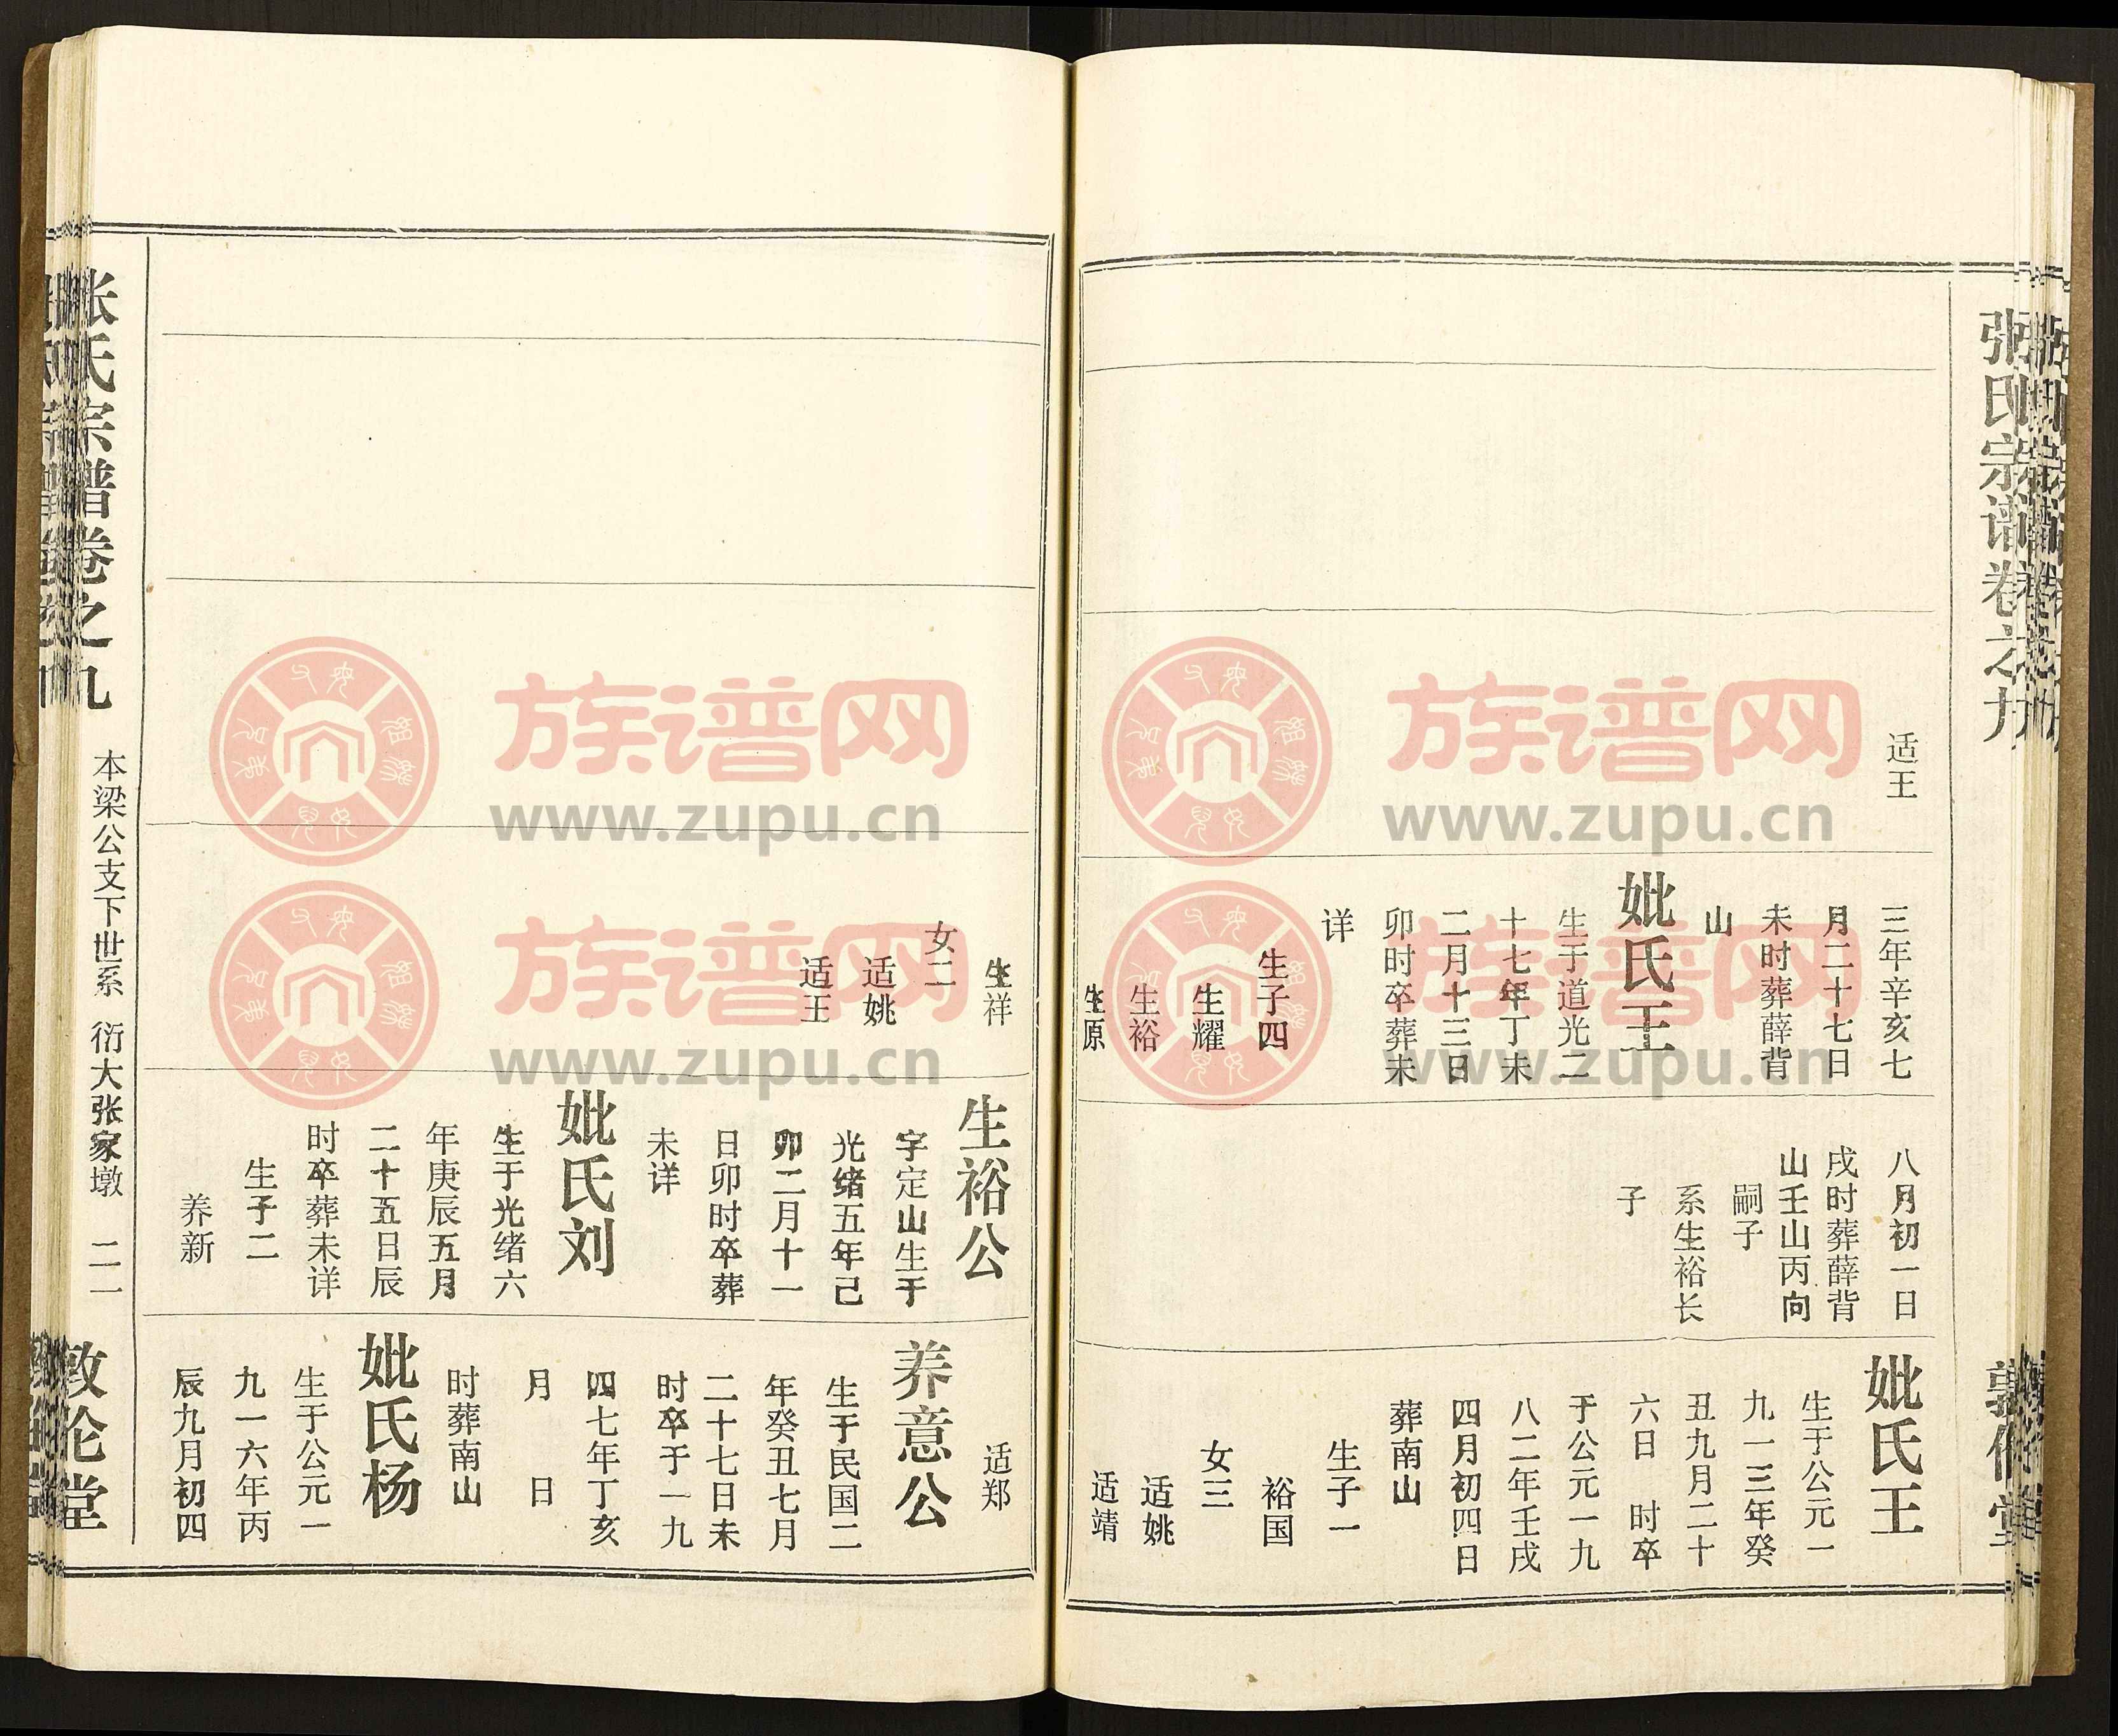 张氏宗谱卷之九
敦伦堂
适王
三年辛亥七
月二十七日
未时葬薛背
山
妣氏王
生于道光二
十七年丁未
二月十三日
卯时卒葬未
详
生子四
生耀
生裕
生原
八月初一日
戌时葬薛背
山壬山丙向
嗣子
系生裕长
子
妣氏王
生于公元一
九一三年癸
丑九月二十
六日 时卒
于公元一九
八二年壬戌
四月初四日
葬南山
生子一
裕国
女三
适姚
适靖
生祥
女二
适姚
适王
生裕公
字定山生于
光绪五年己
卯二月十一
日卯时卒葬
未详
妣氏刘
生于光绪六
年庚辰五月
二十五日辰
时卒葬未详
生子二
养新
适郑
养意公
生于民国二
年癸丑七月
二十七日未
时卒于一九
四七年丁亥
月 日
时葬南山
妣氏杨
生于公元一
九一六年丙
辰九月初四
张氏宗谱卷之九
本梁公支下世系 衍大张家墩 二一
敦伦堂
族谱网
www.zupu.cn
族谱网
www.zupu.cn
族谱网
www.zupu.cn
族谱网
www.zupu.cn